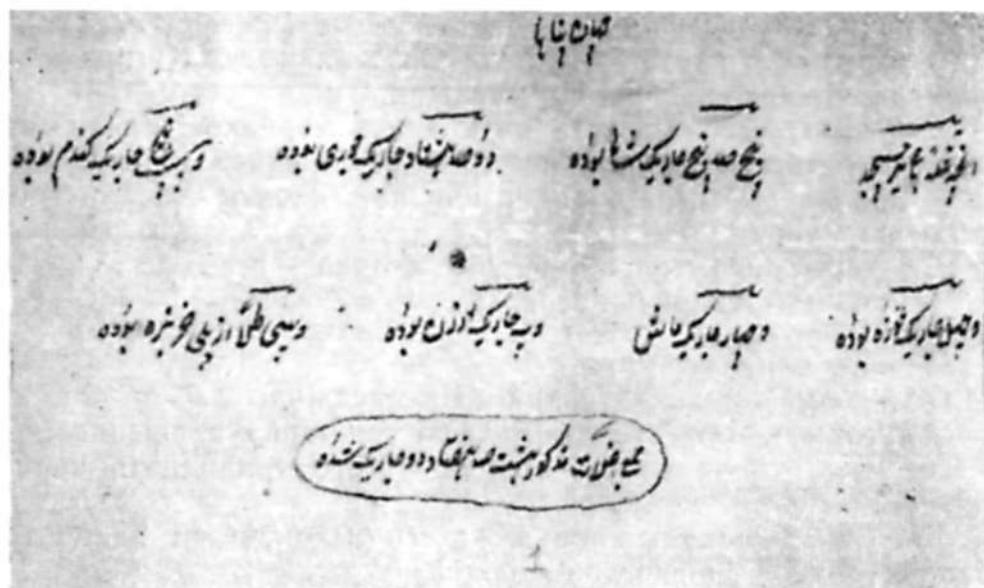 جهان پناها
پنج صد پنج چاریک شالی بوده دو صد هشتاد چاریک جواری بوده و بیست پنج چاریک گندم بوده
و چهل چاریک غوزه بوده و چهار چاریک ماش و سه چاریک ارزن بوده و سی طلا از پلی خربزه بوده
جمع غلات مذکور هشت صد هفتاد دو چاریک شده
1